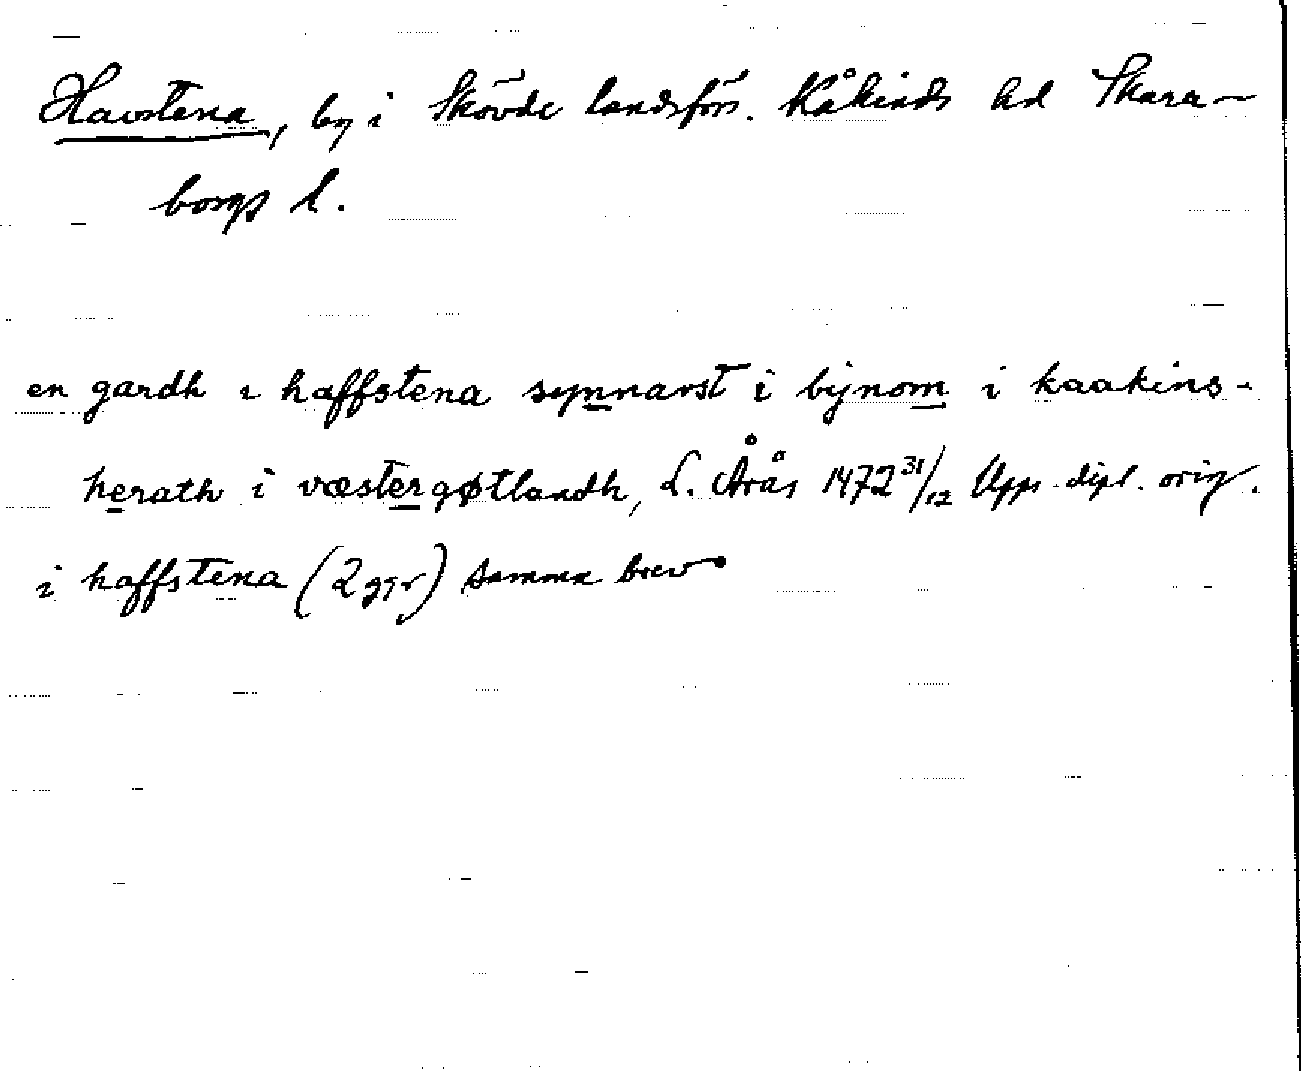 Havstena, by i Skövde landsförs. Kåkinds hd Skara-
borgs l.
en gardh i haffstena synnarst i bijnom i kaakins-
herath i væstergøtlandh, L. Årås 1472 31/12 Upps dipl. orig.
i haffstena (2 ggr) samma brev